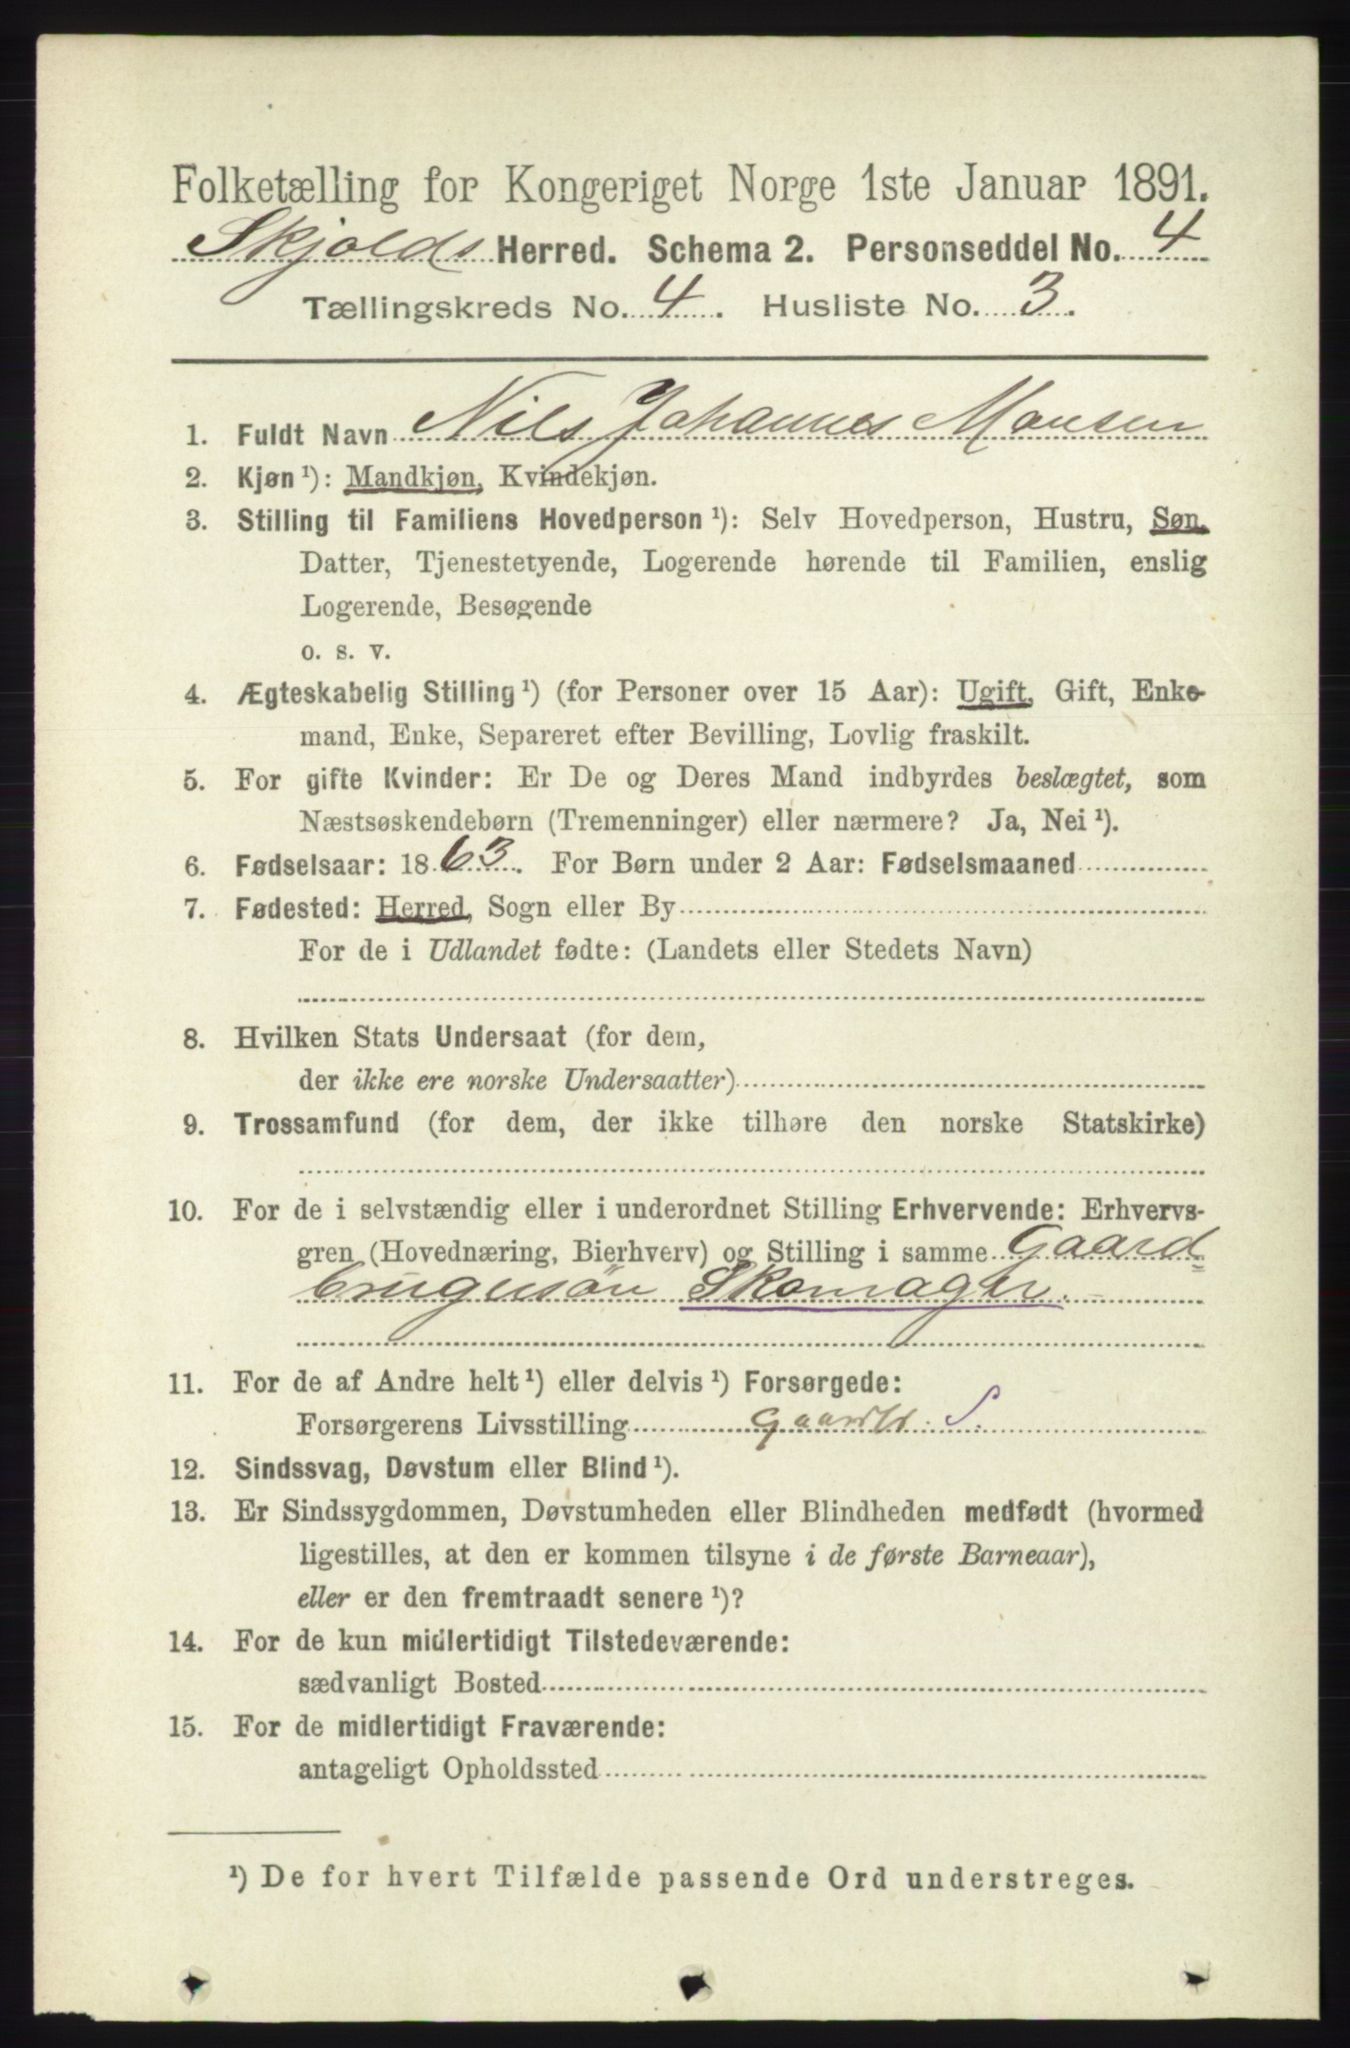 Folketælling for Kongeriget Norge 1ste Januar 1891.
Skjolds Herred. Schema 2. Personseddel No. 4
Tællingskreds No. 4. Husliste No. 3.
1. Fuldt Navn Nils Johannes Monsen
2. Kjøn¹): Mandkjøn, Kvindekjøn.
3. Stilling til Familiens Hovedperson¹): Selv Hovedperson, Hustru, Søn,
Datter, Tjenestetyende, Logerende hørende til Familien, enslig
Logerende, Besøgende
o. s. v.
4. Ægteskabelig Stilling¹) (for Personer over 15 Aar): Ugift, Gift, Enke-
mand, Enke, Separeret efter Bevilling, Lovlig fraskilt.
5. For gifte Kvinder: Er De og Deres Mand indbyrdes beslægtet, som
Næstsøskendebørn (Tremenninger) eller nærmere? Ja, Nei¹).
6. Fødselsaar: 1863. For Børn under 2 Aar: Fødselsmaaned
7. Fødested: Herred, Sogn eller By
For de i Udlandet fødte: (Landets eller Stedets Navn)
8. Hvilken Stats Undersaat (for dem,
der ikke ere norske Undersaatter)
9. Trossamfund (for dem, der ikke tilhøre den norske Statskirke)
10. For de i selvstændig eller i underordnet Stilling Erhvervende: Erhvervs-
gren (Hovednæring, Bierhverv) og Stilling i samme Gaard=
brugersøn Skomager.
11. For de af Andre helt¹) eller delvis¹) Forsørgede:
Forsørgerens Livsstilling Gaardbr. S.
12. Sindssvag, Døvstum eller Blind¹).
13. Er Sindssygdommen, Døvstumheden eller Blindheden medfødt (hvormed
ligestilles, at den er kommen tilsyne i de første Barneaar),
eller er den fremtraadt senere¹)?
14. For de kun midlertidigt Tilstedeværende:
sædvanligt Bosted
15. For de midlertidigt Fraværende:
antageligt Opholdssted
¹) De for hvert Tilfælde passende Ord understreges.